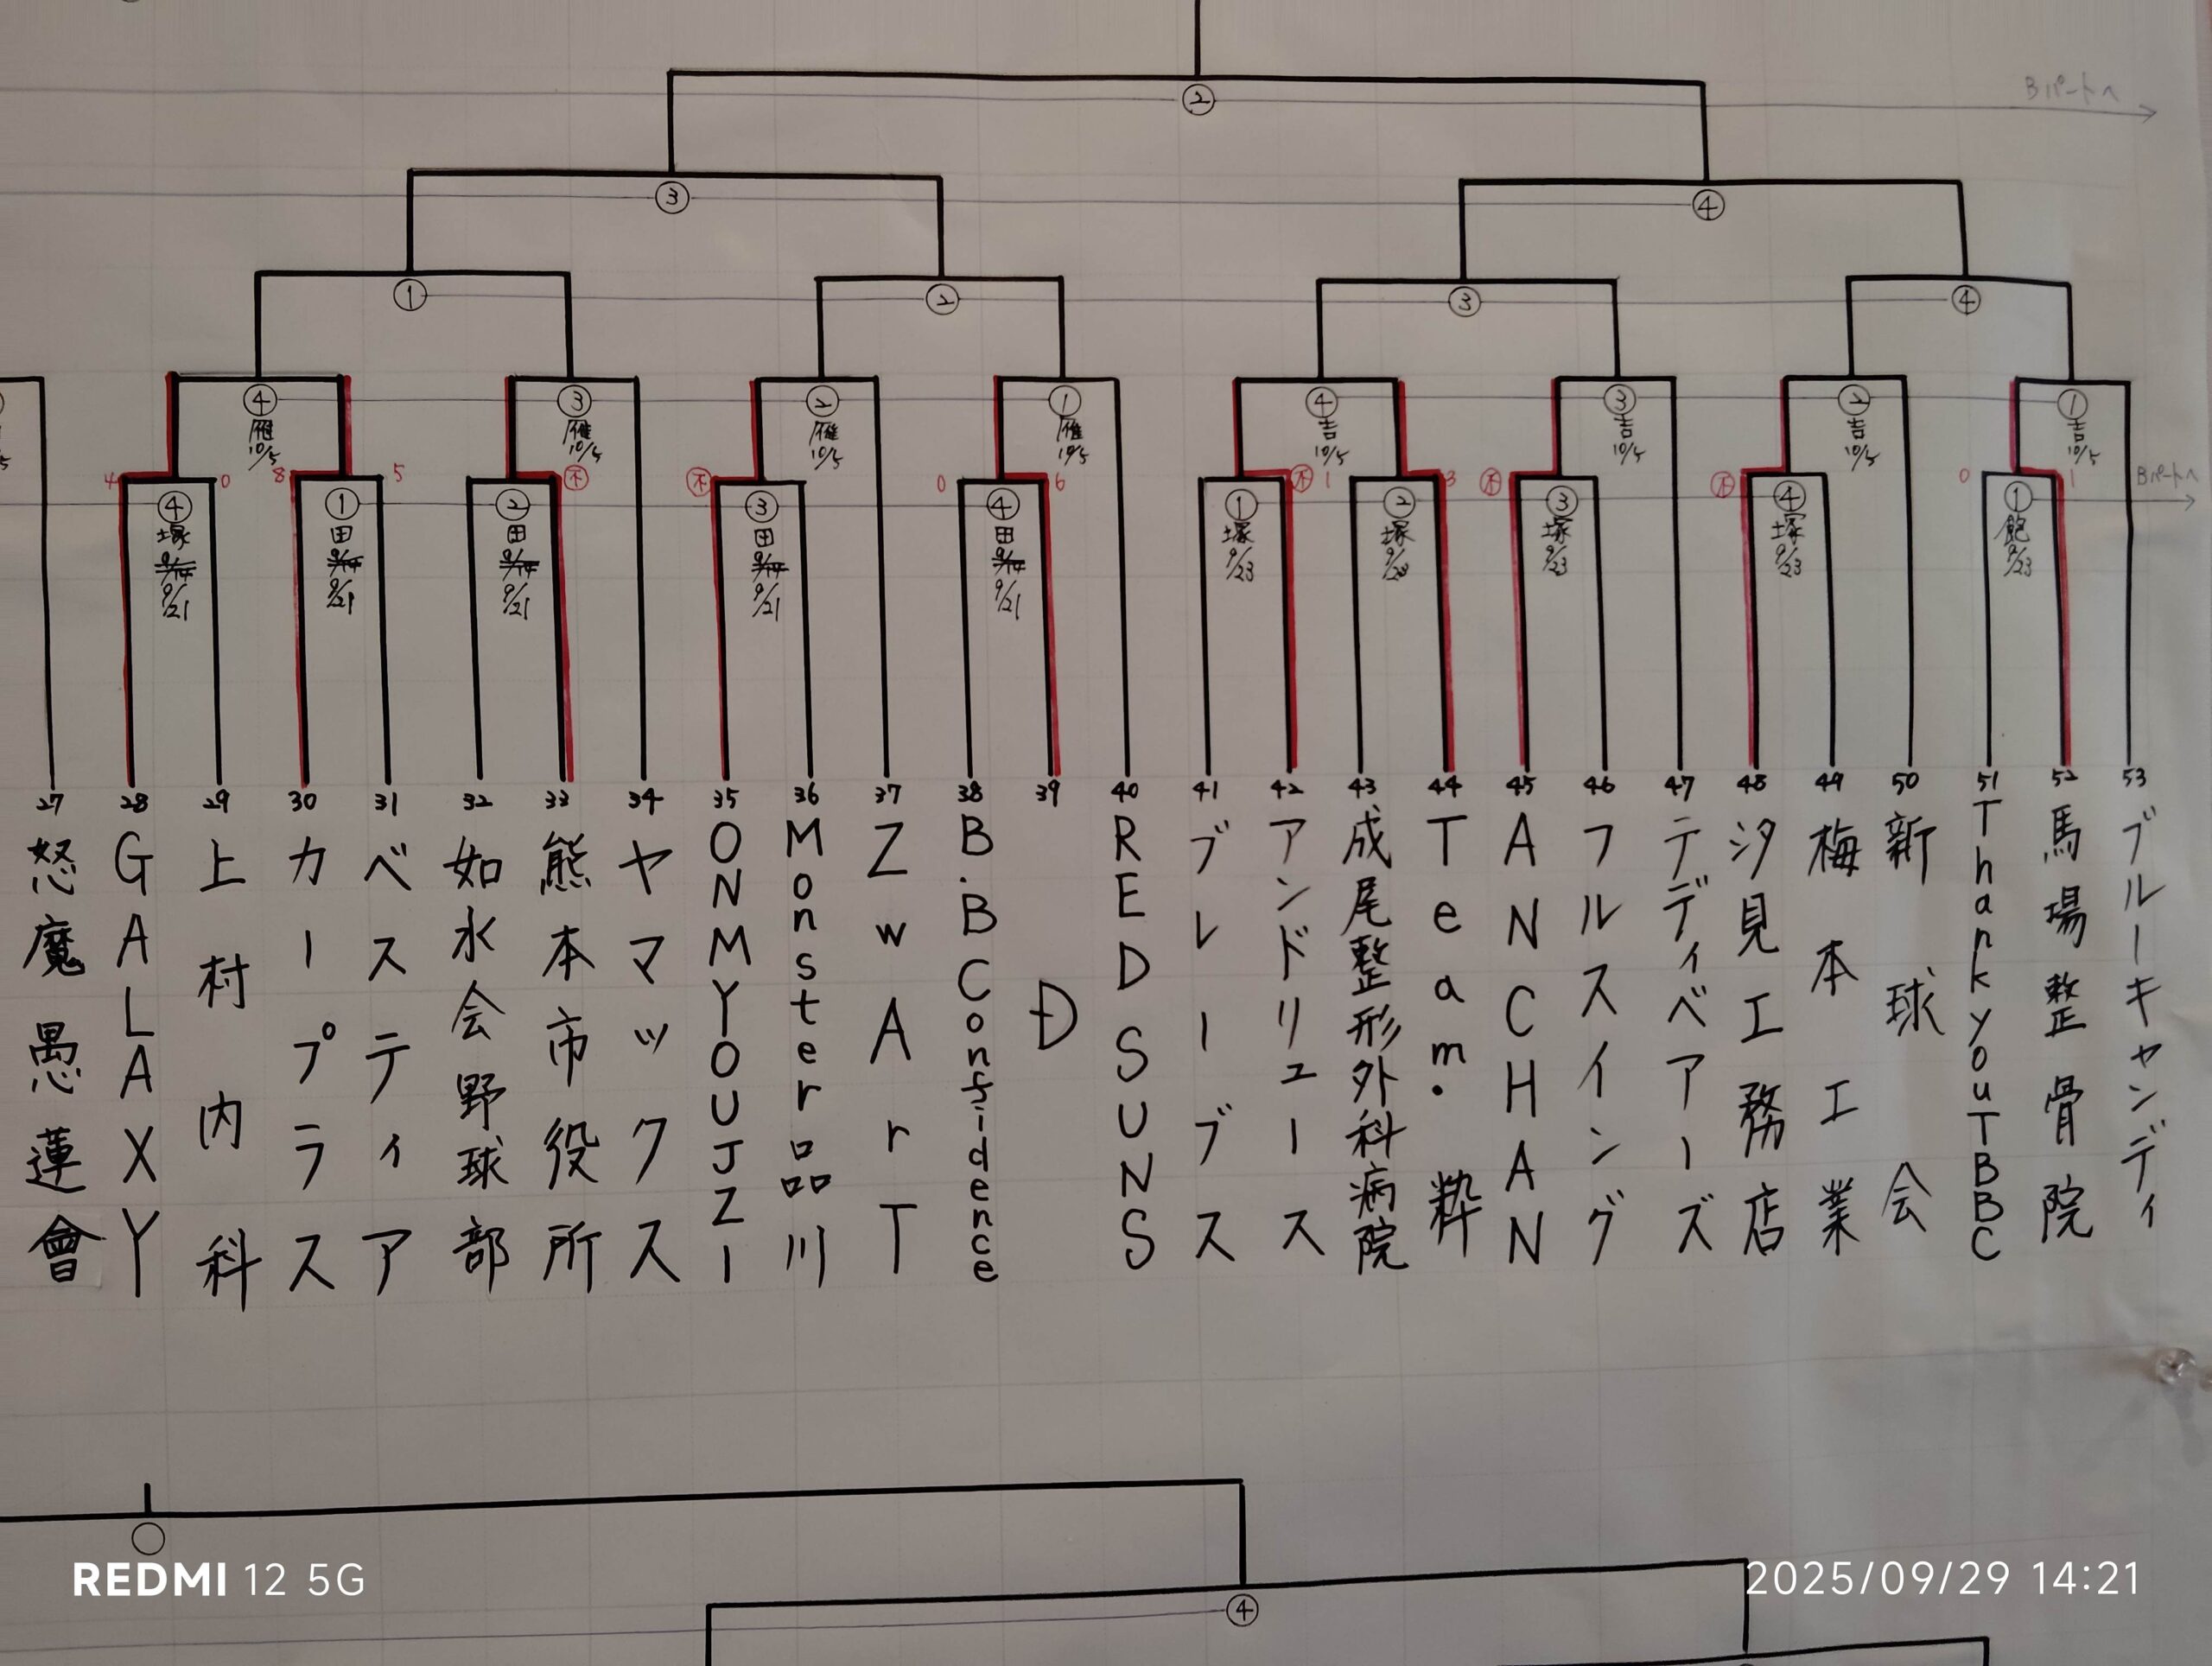 ②
Bパートへ
③
④
①
②
③
④
④
雁
10/5
③
雁
10/5
②
雁
10/5
①
雁
10/5
④
吉
10/5
③
吉
10/5
②
吉
10/5
①
吉
10/5
Bパートへ
4 0
④
塚
9/14
9/21
8 5
①
田
9/14
9/21
不
②
田
9/14
9/21
不
③
田
9/14
9/21
0 6
④
田
9/14
9/21
不
①
塚
9/23
1 3
②
塚
9/23
不
③
塚
9/23
不
④
塚
9/23
0 1
①
飽
9/23
27 怒魔愚蓮會
28 GALAXY
29 上村内科
30 カープラス
31 ベスティア
32 如水会野球部
33 熊本市役所
34 ヤマックス
35 ONMYOUJZI
36 Monster品川
37 ZwArT
38 B.BConfidence
39 Đ
40 REDSUNS
41 ブレーブス
42 アンドリュース
43 成尾整形外科病院
44 Team.粋
45 ANCHAN
46 フルスイング
47 テディベアーズ
48 汐見工務店
49 梅本工業
50 新球会
51 ThankyouTBBC
52 馬場整骨院
53 ブルーキャンディ
④
REDMI 12 5G
2025/09/29 14:21